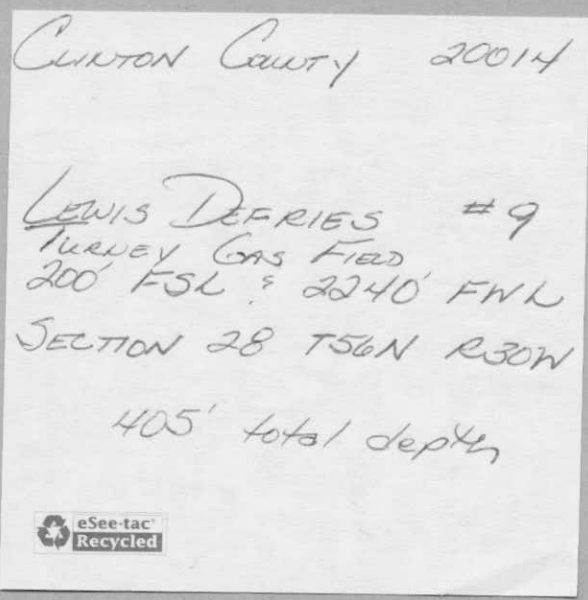 CLINTON COUNTY 20014
LEWIS DEFRIES #9
TURNEY GAS FIELD
200' FSL & 2240' FWL
SECTION 28 T56N R30W
405' total depth
eSee-tac®
Recycled